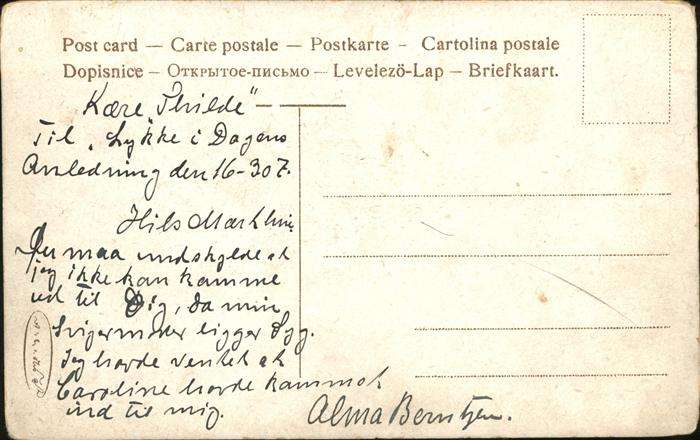 Post card — Carte postale — Postkarte - Cartolina postale
Dopisnice — Открытое-письмо — Levelezö-Lap — Briefkaart.
Kære „Thilde"
Til „Lykke i Dagens
Anledning den 16-30 7.
Hils
Du maa undskylde at
jeg ikke kan komme
ud til Dig, da min
Svigermoder ligger syg.
Jeg havde ventet at
Caroline havde kommet
ind til mig.
Alma Berntzen.